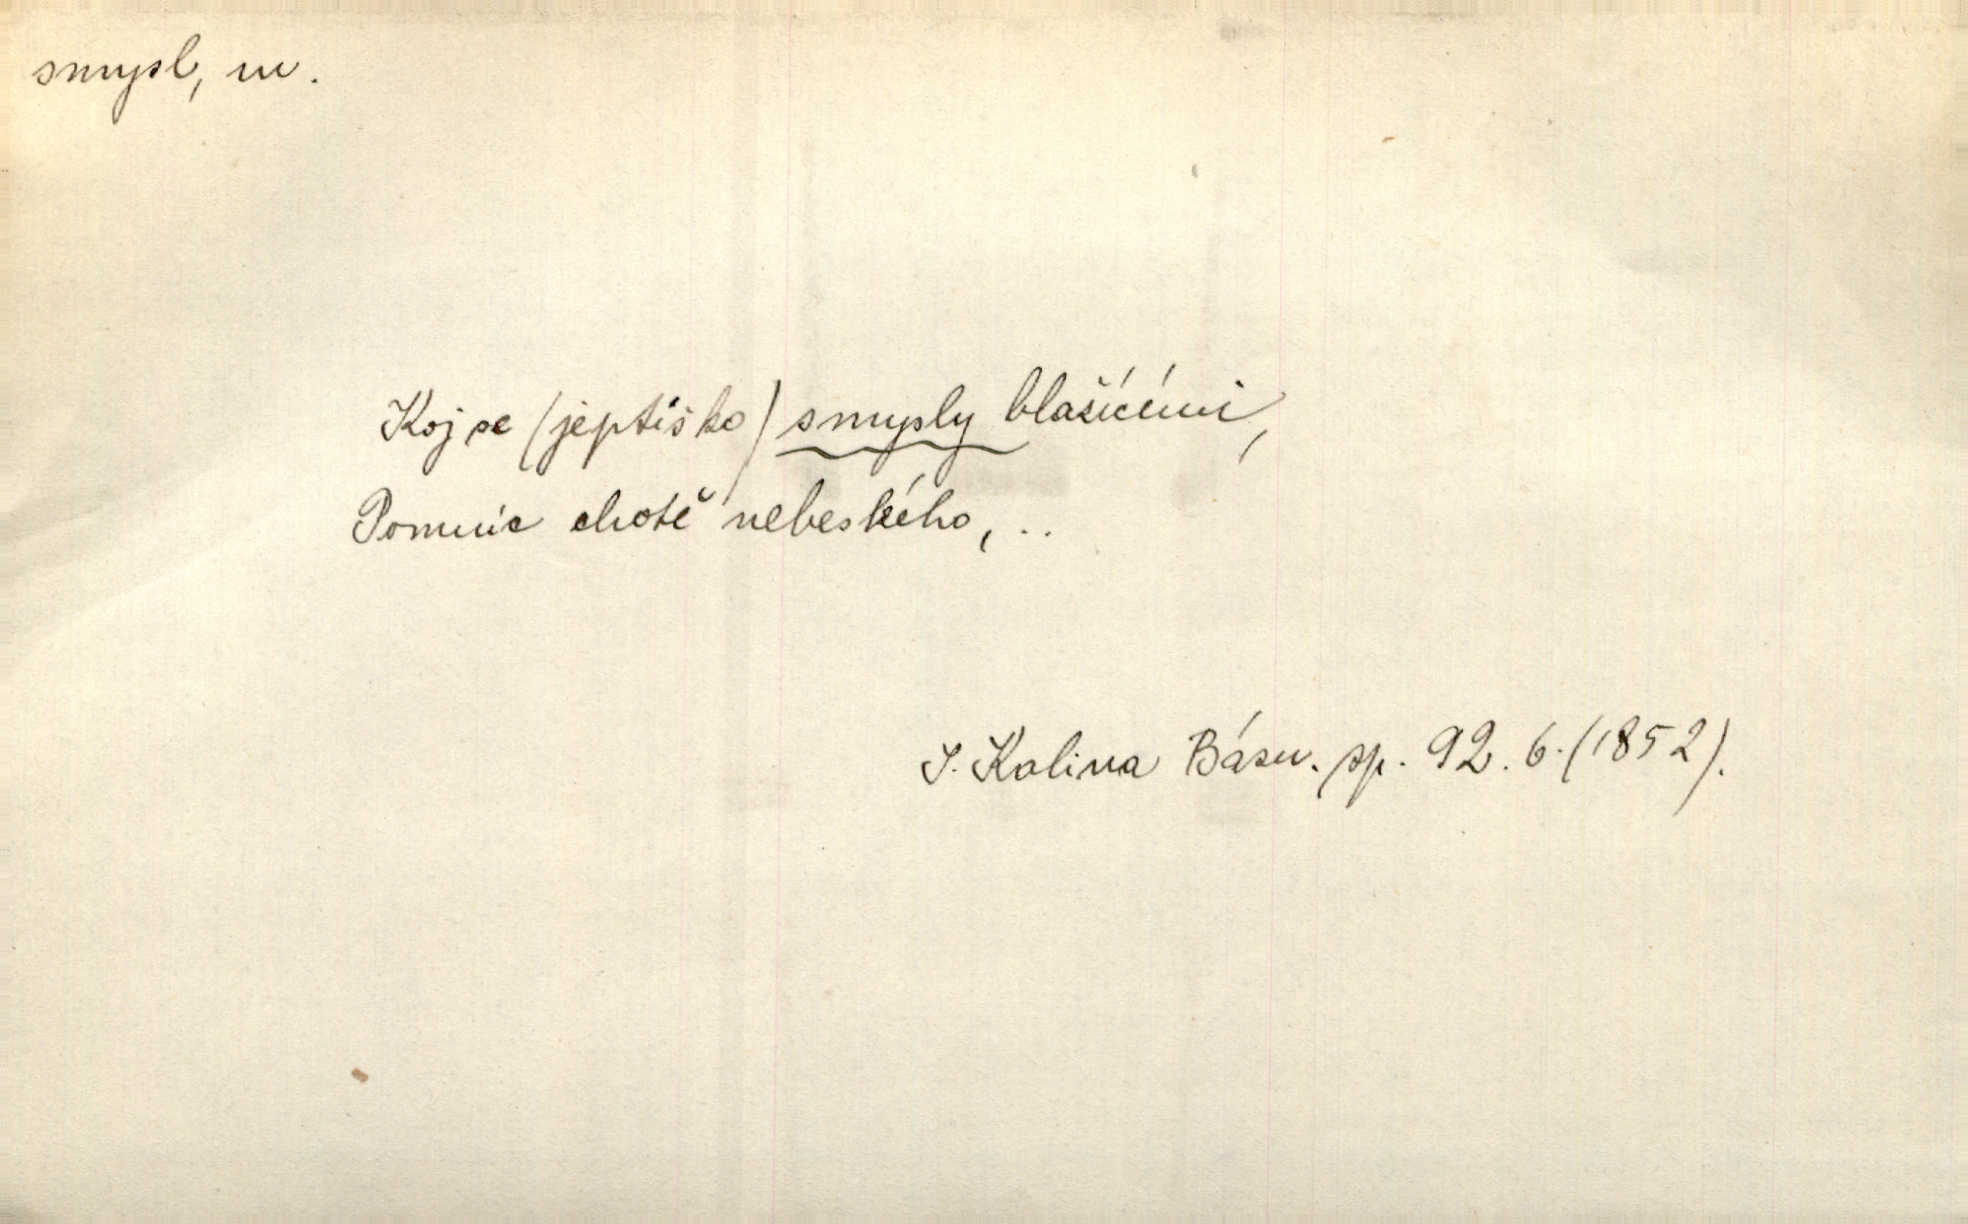 smysl, m.
Koj se (jeptiško) smysly blažícími,
Pomníc chotě nebeského, ..
J. Kalina Básn. sp. 92. 6. (1852).